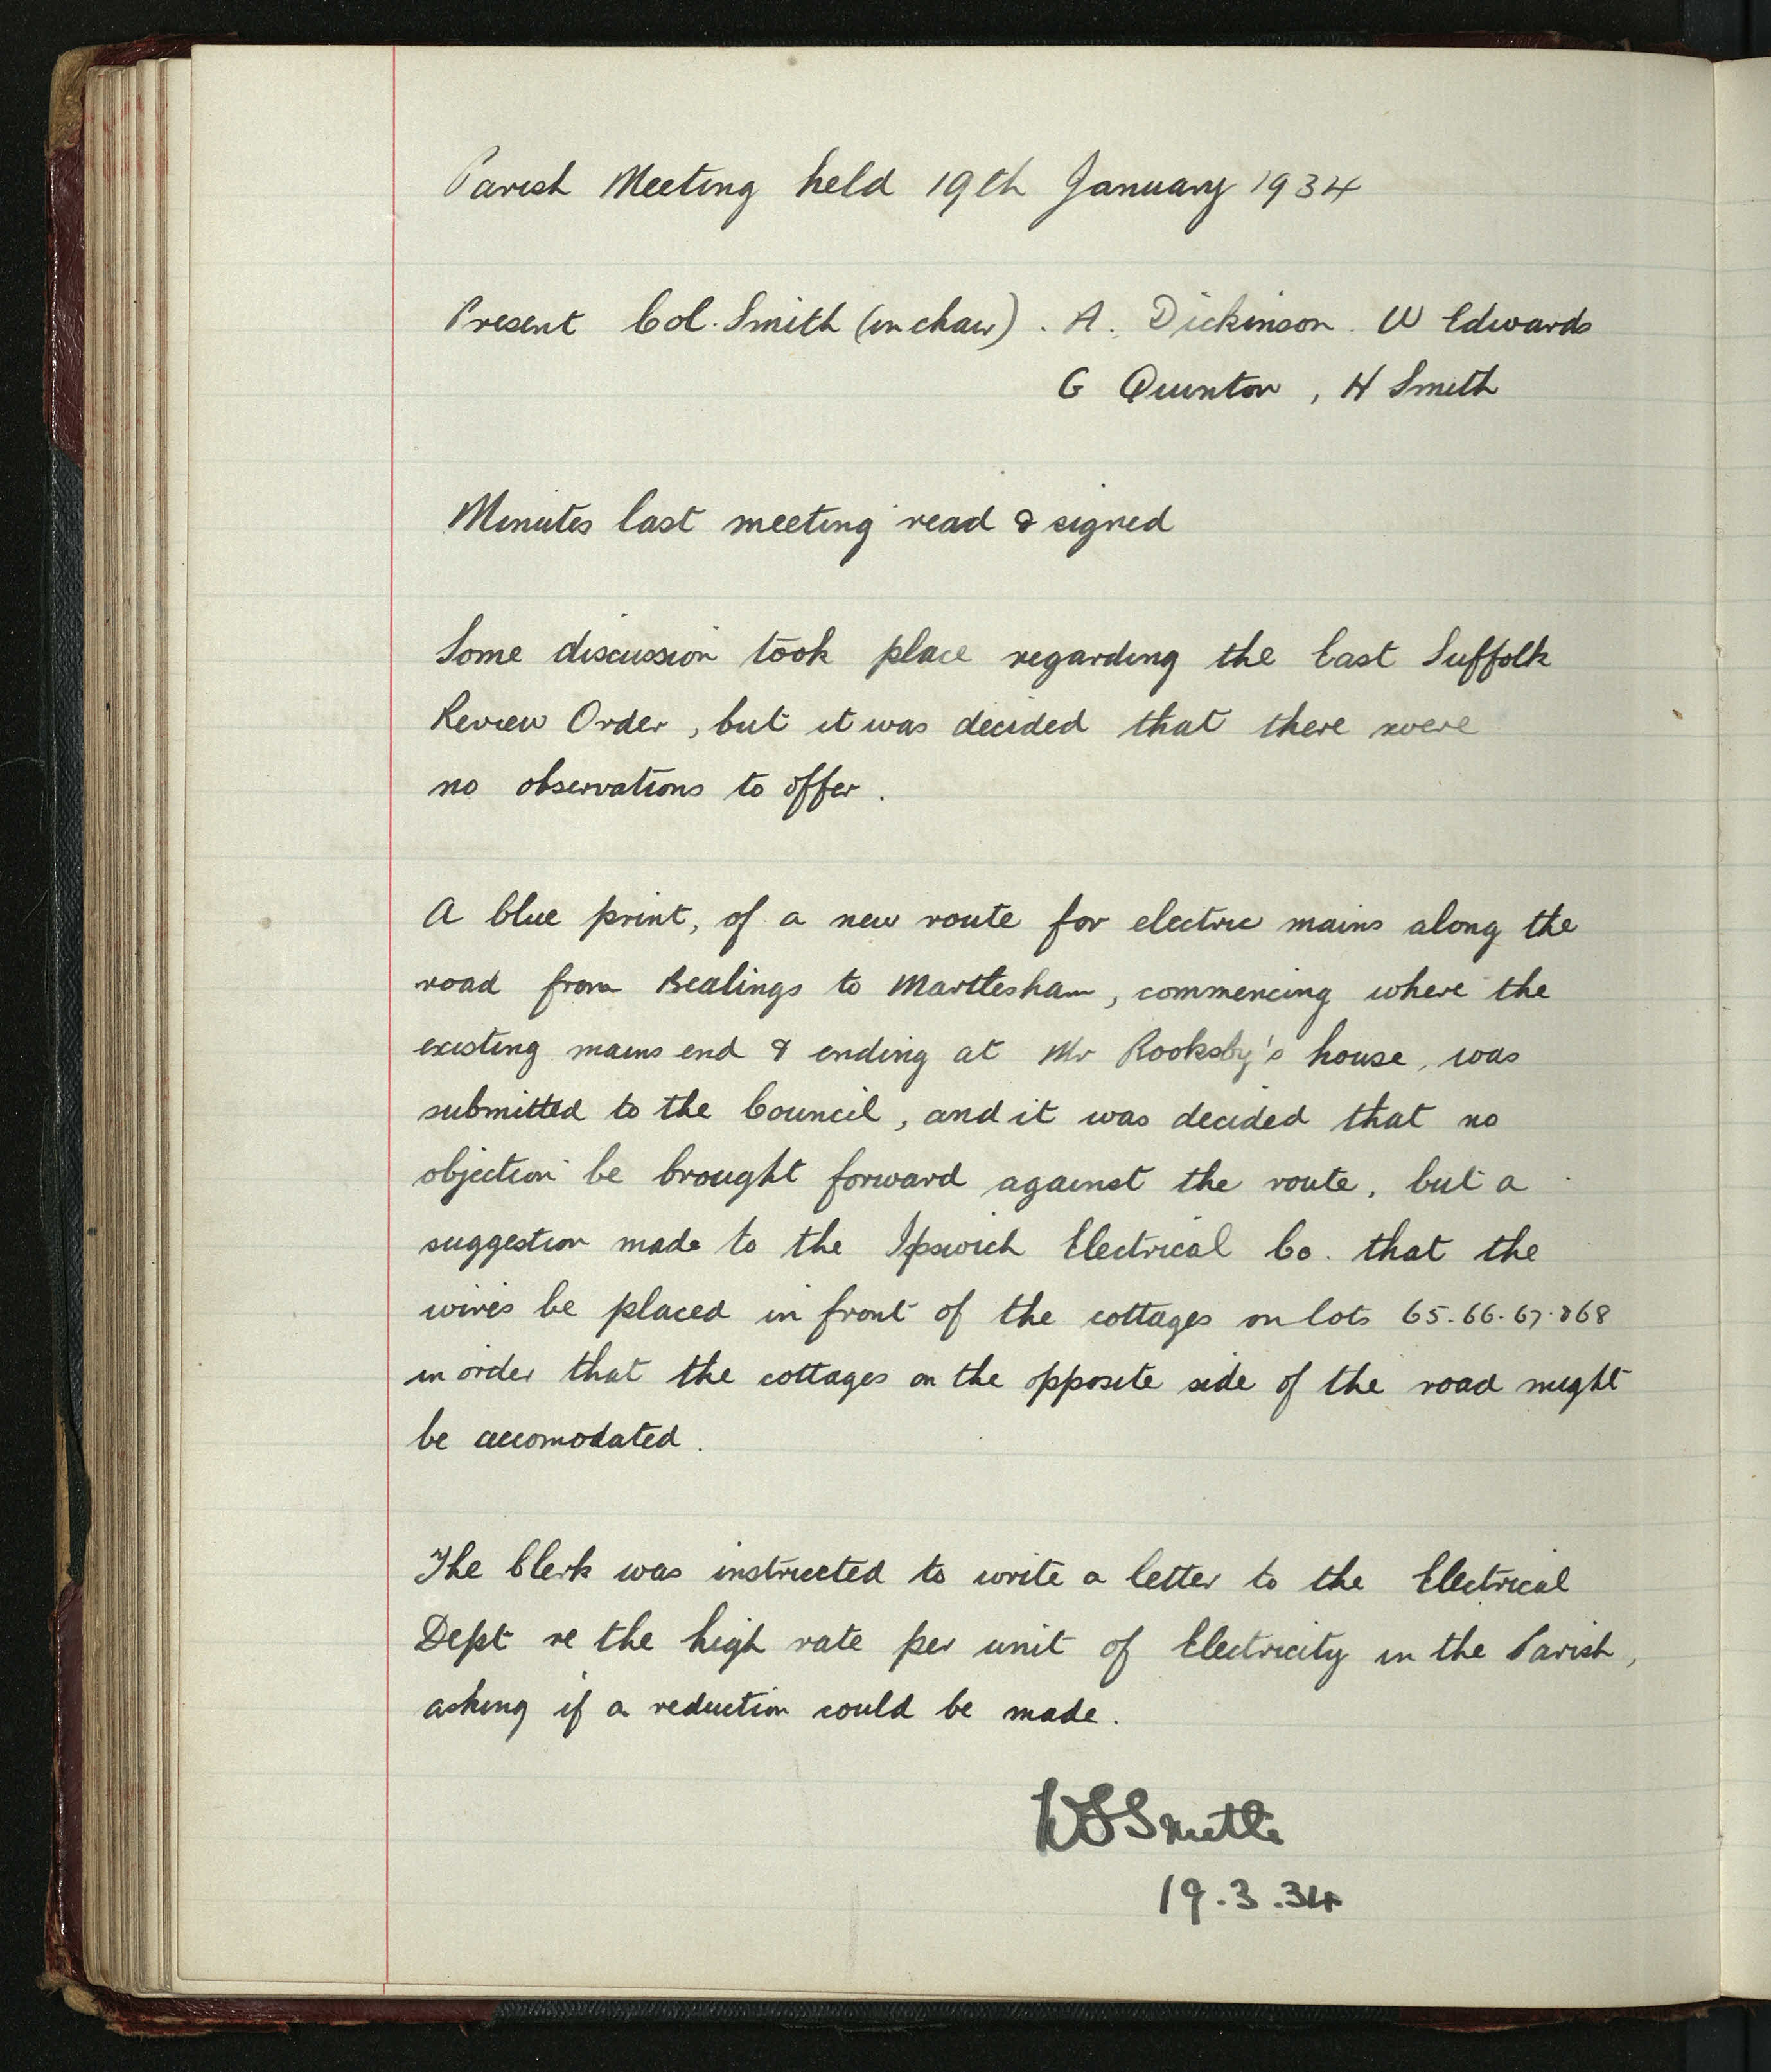 Parish Meeting held 19th January 1934
Present Col. Smith (in chair). A. Dickinson. W Edwards
G Quinton, H Smith
Minutes last meeting read & signed
Some discussion took place regarding the East Suffolk
Review Order, but it was decided that there were
no observations to offer.
A blue print, of a new route for electric mains along the
road from Bealings to Martlesham, commencing where the
existing mains end & ending at Mr Rooksby's house, was
submitted to the Council, and it was decided that no
objection be brought forward against the route, but a
suggestion made to the Ipswich Electrical Co. that the
wires be placed in front of the cottages on lots 65.66.67.&68
in order that the cottages on the opposite side of the road might
be accomodated.
The Clerk was instructed to write a letter to the Electrical
Dept re the high rate per unit of Electricity in the Parish,
asking if a reduction could be made.
WSSmith
19.3.34